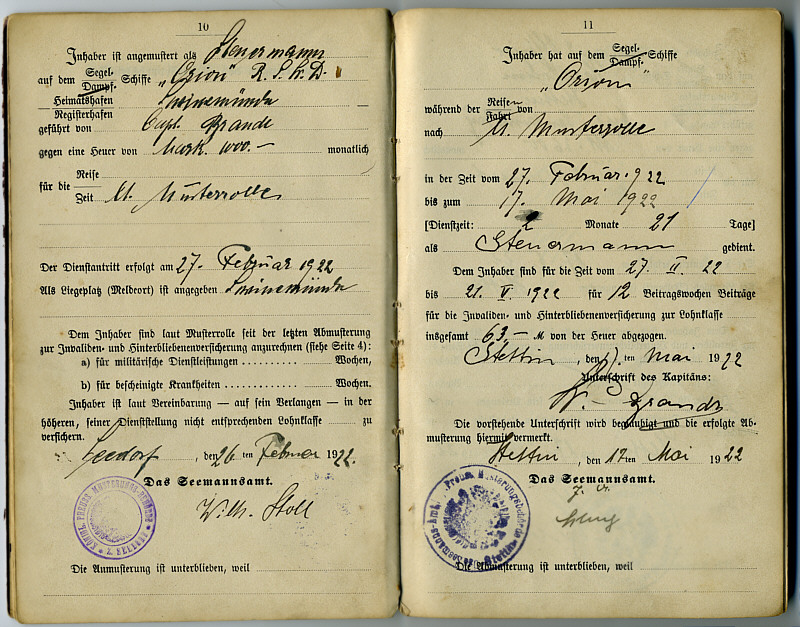 10
Inhaber ist angemustert als Steuermann
auf dem Segel- Dampf- Schiffe „Orion" R. S. W. D.
Heimatshafen Swinemünde
Registerhafen
geführt von Capt. Brande
gegen eine Heuer von Mark. 1000.— monatlich
für die Reise
Zeit lt. Musterrolle
Der Dienstantritt erfolgt am 27. Februar 1922
Als Liegeplatz (Meldeort) ist angegeben Swinemünde
Dem Inhaber sind laut Musterrolle seit der letzten Abmusterung
zur Invaliden- und Hinterbliebenenversicherung anzurechnen (siehe Seite 4):
a) für militärische Dienstleistungen .......... Wochen,
b) für bescheinigte Krankheiten ............ Wochen.
Inhaber ist laut Vereinbarung — auf sein Verlangen — in der
höheren, seiner Dienststellung nicht entsprechenden Lohnklasse zu
versichern.
, den 26ten Februar 1922.
Das Seemannsamt.
W. Stoll
KÖNIGL. PREUSS. MUSTERUNGS-BEHÖRDE
Die Anmusterung ist unterblieben, weil
11
Inhaber hat auf dem Segel- Dampf- Schiffe
„Orion"
während der Reisen Fahrt von
nach lt. Musterrolle
in der Zeit vom 27. Februar 1922
bis zum 17. Mai 1922
[Dienstzeit: 2 Monate 21 Tage]
als Steuermann gedient.
Dem Inhaber sind für die Zeit vom 27. II. 22
bis 21. V. 1922 für 12 Beitragswochen Beiträge
für die Invaliden- und Hinterbliebenenversicherung zur Lohnklasse
insgesamt 63.— M von der Heuer abgezogen.
Stettin, den 17.ten Mai 1922
Unterschrift des Kapitäns:
W. Brande
Die vorstehende Unterschrift wird beglaubigt und die erfolgte Ab-
musterung hiermit vermerkt.
Stettin, den 17ten Mai 1922
Das Seemannsamt.
Preuß. Musterungsbehörde Seemanns-Amt Stettin
Die Anmusterung ist unterblieben, weil